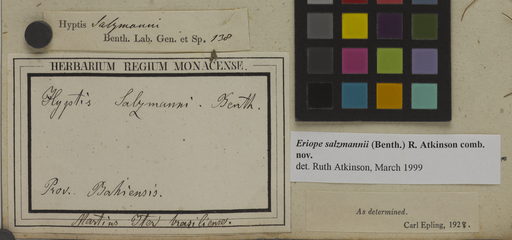 Hyptis Salzmanni
Benth. Lab. Gen. et Sp. 138
HERBARIUM REGIUM MONACENSE.
Hyptis Salzmanni. Benth.
Prov. Bahiensis.
Martius Iter brasiliense.
Eriope salzmannii (Benth.) R. Atkinson comb.
nov.
det. Ruth Atkinson, March 1999
As determined.
Carl Epling, 1928.